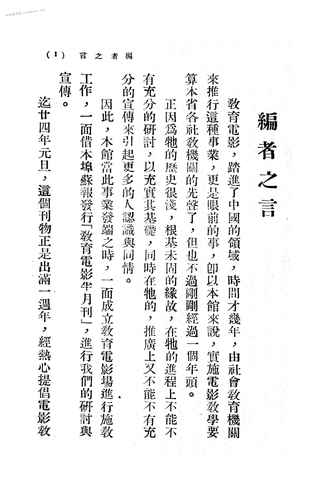 編者之言　（1）
編者之言
教育電影，踏進了中國的領域，時間才幾年，由社會教育機關
來推行這種事業，更是眼前的事，卽以本館來說，實施電影教學要
算本省各社教機關的先聲了，但也不過剛剛經過一個年頭。
正因爲牠的歷史很淺，根基未固的緣故，在牠的進程上不能不
有充分的研討，以充實其基礎，同時在牠的，推廣上又不能不有充
分的宣傳來引起更多的人認識與同情。
因此，本館當此事業發端之時，一面成立教育電影場進行施教
工作，一面借本埠蘇報發行「教育電影半月刊」，進行我們的研討與
宣傳。
迄廿四年元旦，這個刊物正是出滿一週年，經熱心提倡電影教